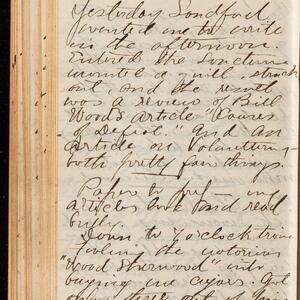 Yesterday Sandford
wanted me to write
in the afternoon.
Entered the Sanctum
a quill, struck
out, and the result
was a review of Bill
Wood's article "Causes
of Defeat." And an
article on Volunteering
both pretty fair things.
Paper to
articles look and read
bully.
Down to 4 o'clock train
the notorious
"Wood Sherwood" into
buying me cigars. Got